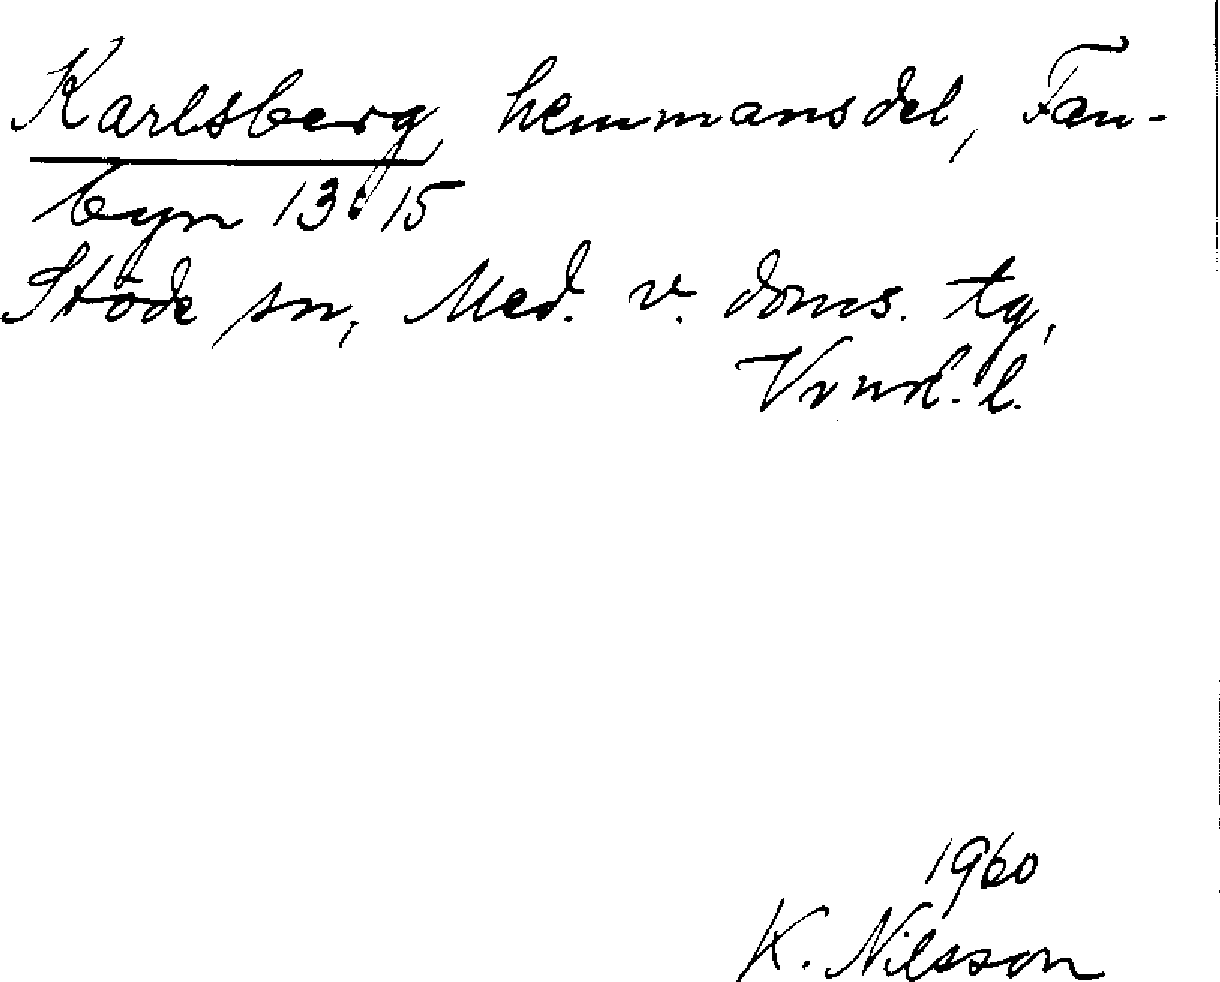 Karlsberg, hemmansdel, Fan-
byn 13:15
Stöde sn, Med. v. doms. tg,
Vrnl. l.
1960
K. Nilsson